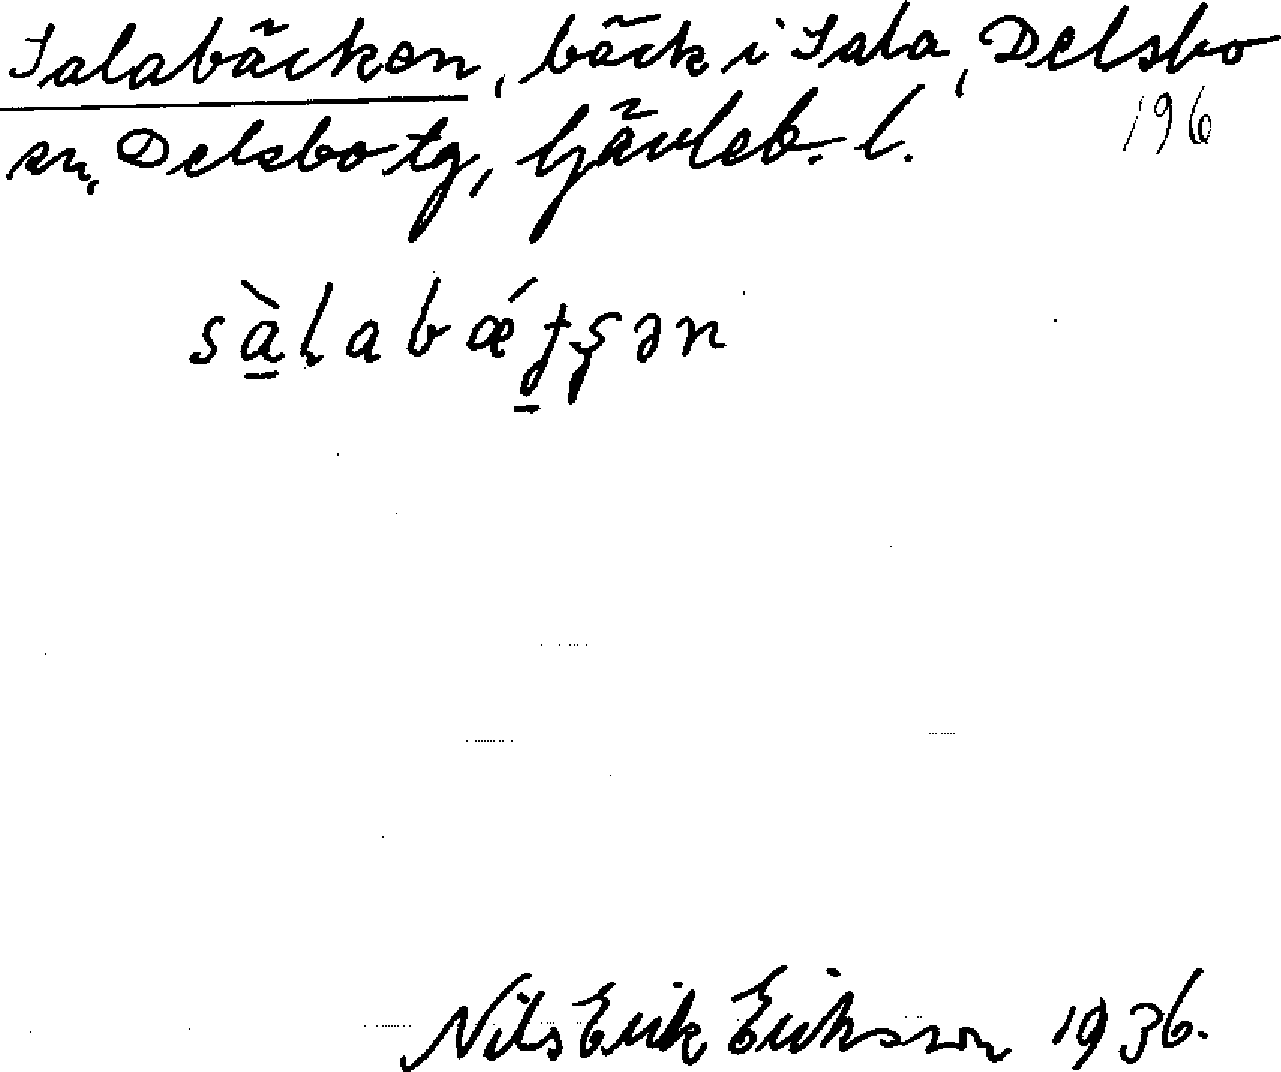 Salabäcken, bäck i Sala, Delsbo
sn, Delsbo tg, Gävleb. l.
196
sàl̥abǽʈʂən
Nils Erik Eriksson 1936.